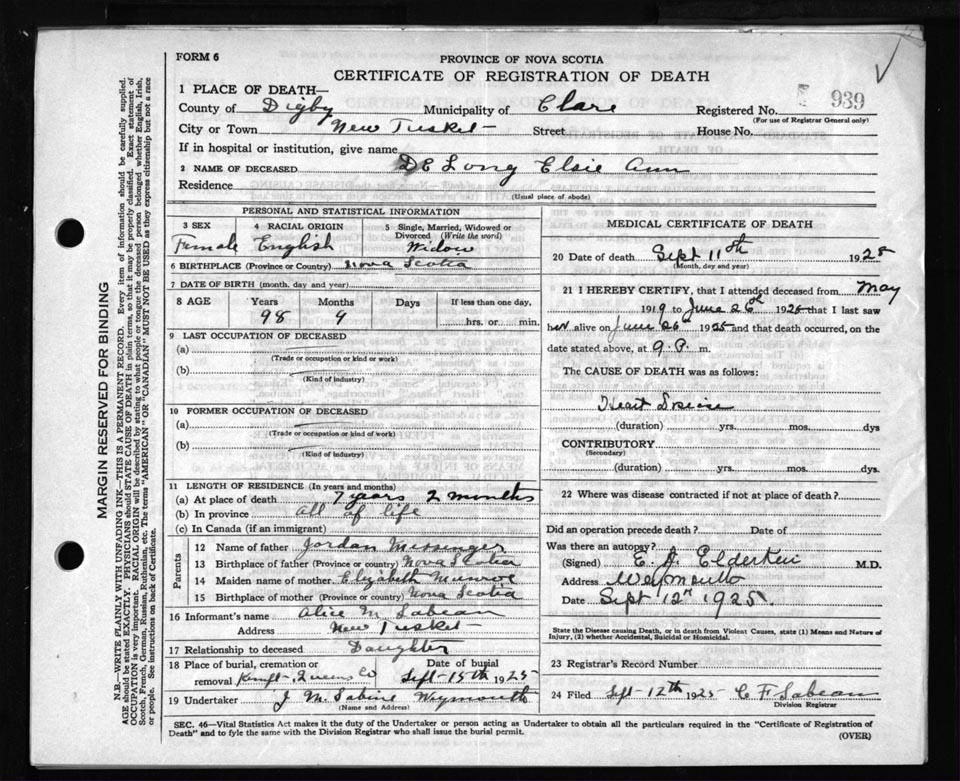 FORM 6
PROVINCE OF NOVA SCOTIA
CERTIFICATE OF REGISTRATION OF DEATH
1 PLACE OF DEATH—
County of Digby Municipality of Clare Registered No. 939
(For use of Registrar General only)
City or Town New Tusket Street House No.
If in hospital or institution, give name
2 NAME OF DECEASED DE Long Elsie Ann
Residence
(Usual place of abode)
PERSONAL AND STATISTICAL INFORMATION
3 SEX 4 RACIAL ORIGIN 5 Single, Married, Widowed or Divorced (Write the word)
Female English Widow
6 BIRTHPLACE (Province or Country) Nova Scotia
7 DATE OF BIRTH (month, day and year)
8 AGE Years Months Days If less than one day,
98 9 hrs. or min.
9 LAST OCCUPATION OF DECEASED
(a)
(Trade or occupation or kind or work)
(b)
(Kind of industry)
10 FORMER OCCUPATION OF DECEASED
(a)
(Trade or occupation or kind of work)
(b)
(Kind of industry)
11 LENGTH OF RESIDENCE (In years and months)
(a) At place of death 7 years 2 months
(b) In province all of life
(c) In Canada (if an immigrant)
Parents
12 Name of father Jordan Messenger
13 Birthplace of father (Province or country) Nova Scotia
14 Maiden name of mother Elizabeth Munroe
15 Birthplace of mother (Province or country) Nova Scotia
16 Informant's name Alice M Sabean
Address New Tusket
17 Relationship to deceased Daughter
18 Place of burial, cremation or removal Kempt Queens Co Date of burial Sept 15th 1925
19 Undertaker J M Sabine Weymouth
(Name and Address)
MEDICAL CERTIFICATE OF DEATH
20 Date of death Sept 11th 1925
(Month, day and year)
21 I HEREBY CERTIFY, that I attended deceased from May
1919 to June 26th 1925 that I last saw
her alive on June 26th 1925 and that death occurred, on the
date stated above, at 9 P. m.
The CAUSE OF DEATH was as follows:
Heart
(duration) yrs. mos. dys
CONTRIBUTORY
(Secondary)
(duration) yrs. mos. dys.
22 Where was disease contracted if not at place of death?
Did an operation precede death? Date of
Was there an autopsy?
(Signed) E. A. Elderkin M.D.
Address Weymouth
Date Sept 12th 1925.
State the Disease causing Death, or in death from Violent Causes, state (1) Means and Nature of
Injury, (2) whether Accidental, Suicidal or Homicidal.
23 Registrar's Record Number
24 Filed Sept 12th 1925 C F Sabean
Division Registrar
SEC. 46—Vital Statistics Act makes it the duty of the Undertaker or person acting as Undertaker to obtain all the particulars required in the "Certificate of Registration of
Death" and to fyle the same with the Division Registrar who shall issue the burial permit.
(OVER)
MARGIN RESERVED FOR BINDING
N.B.—WRITE PLAINLY WITH UNFADING INK—THIS IS A PERMANENT RECORD. Every item of information should be carefully supplied.
AGE should be stated EXACTLY. PHYSICIANS should STATE CAUSE OF DEATH in plain terms, so that it may be properly classified. Exact statement of
OCCUPATION is very important. RACIAL ORIGIN will be described by stating to what people or tongue the deceased person belonged whether English, Irish,
Scotch, French, German, Russian, Ruthenian, etc. The terms "AMERICAN" OR "CANADIAN" MUST NOT BE USED as they express citizenship but not a race
or people. See instructions on back of Certificate.